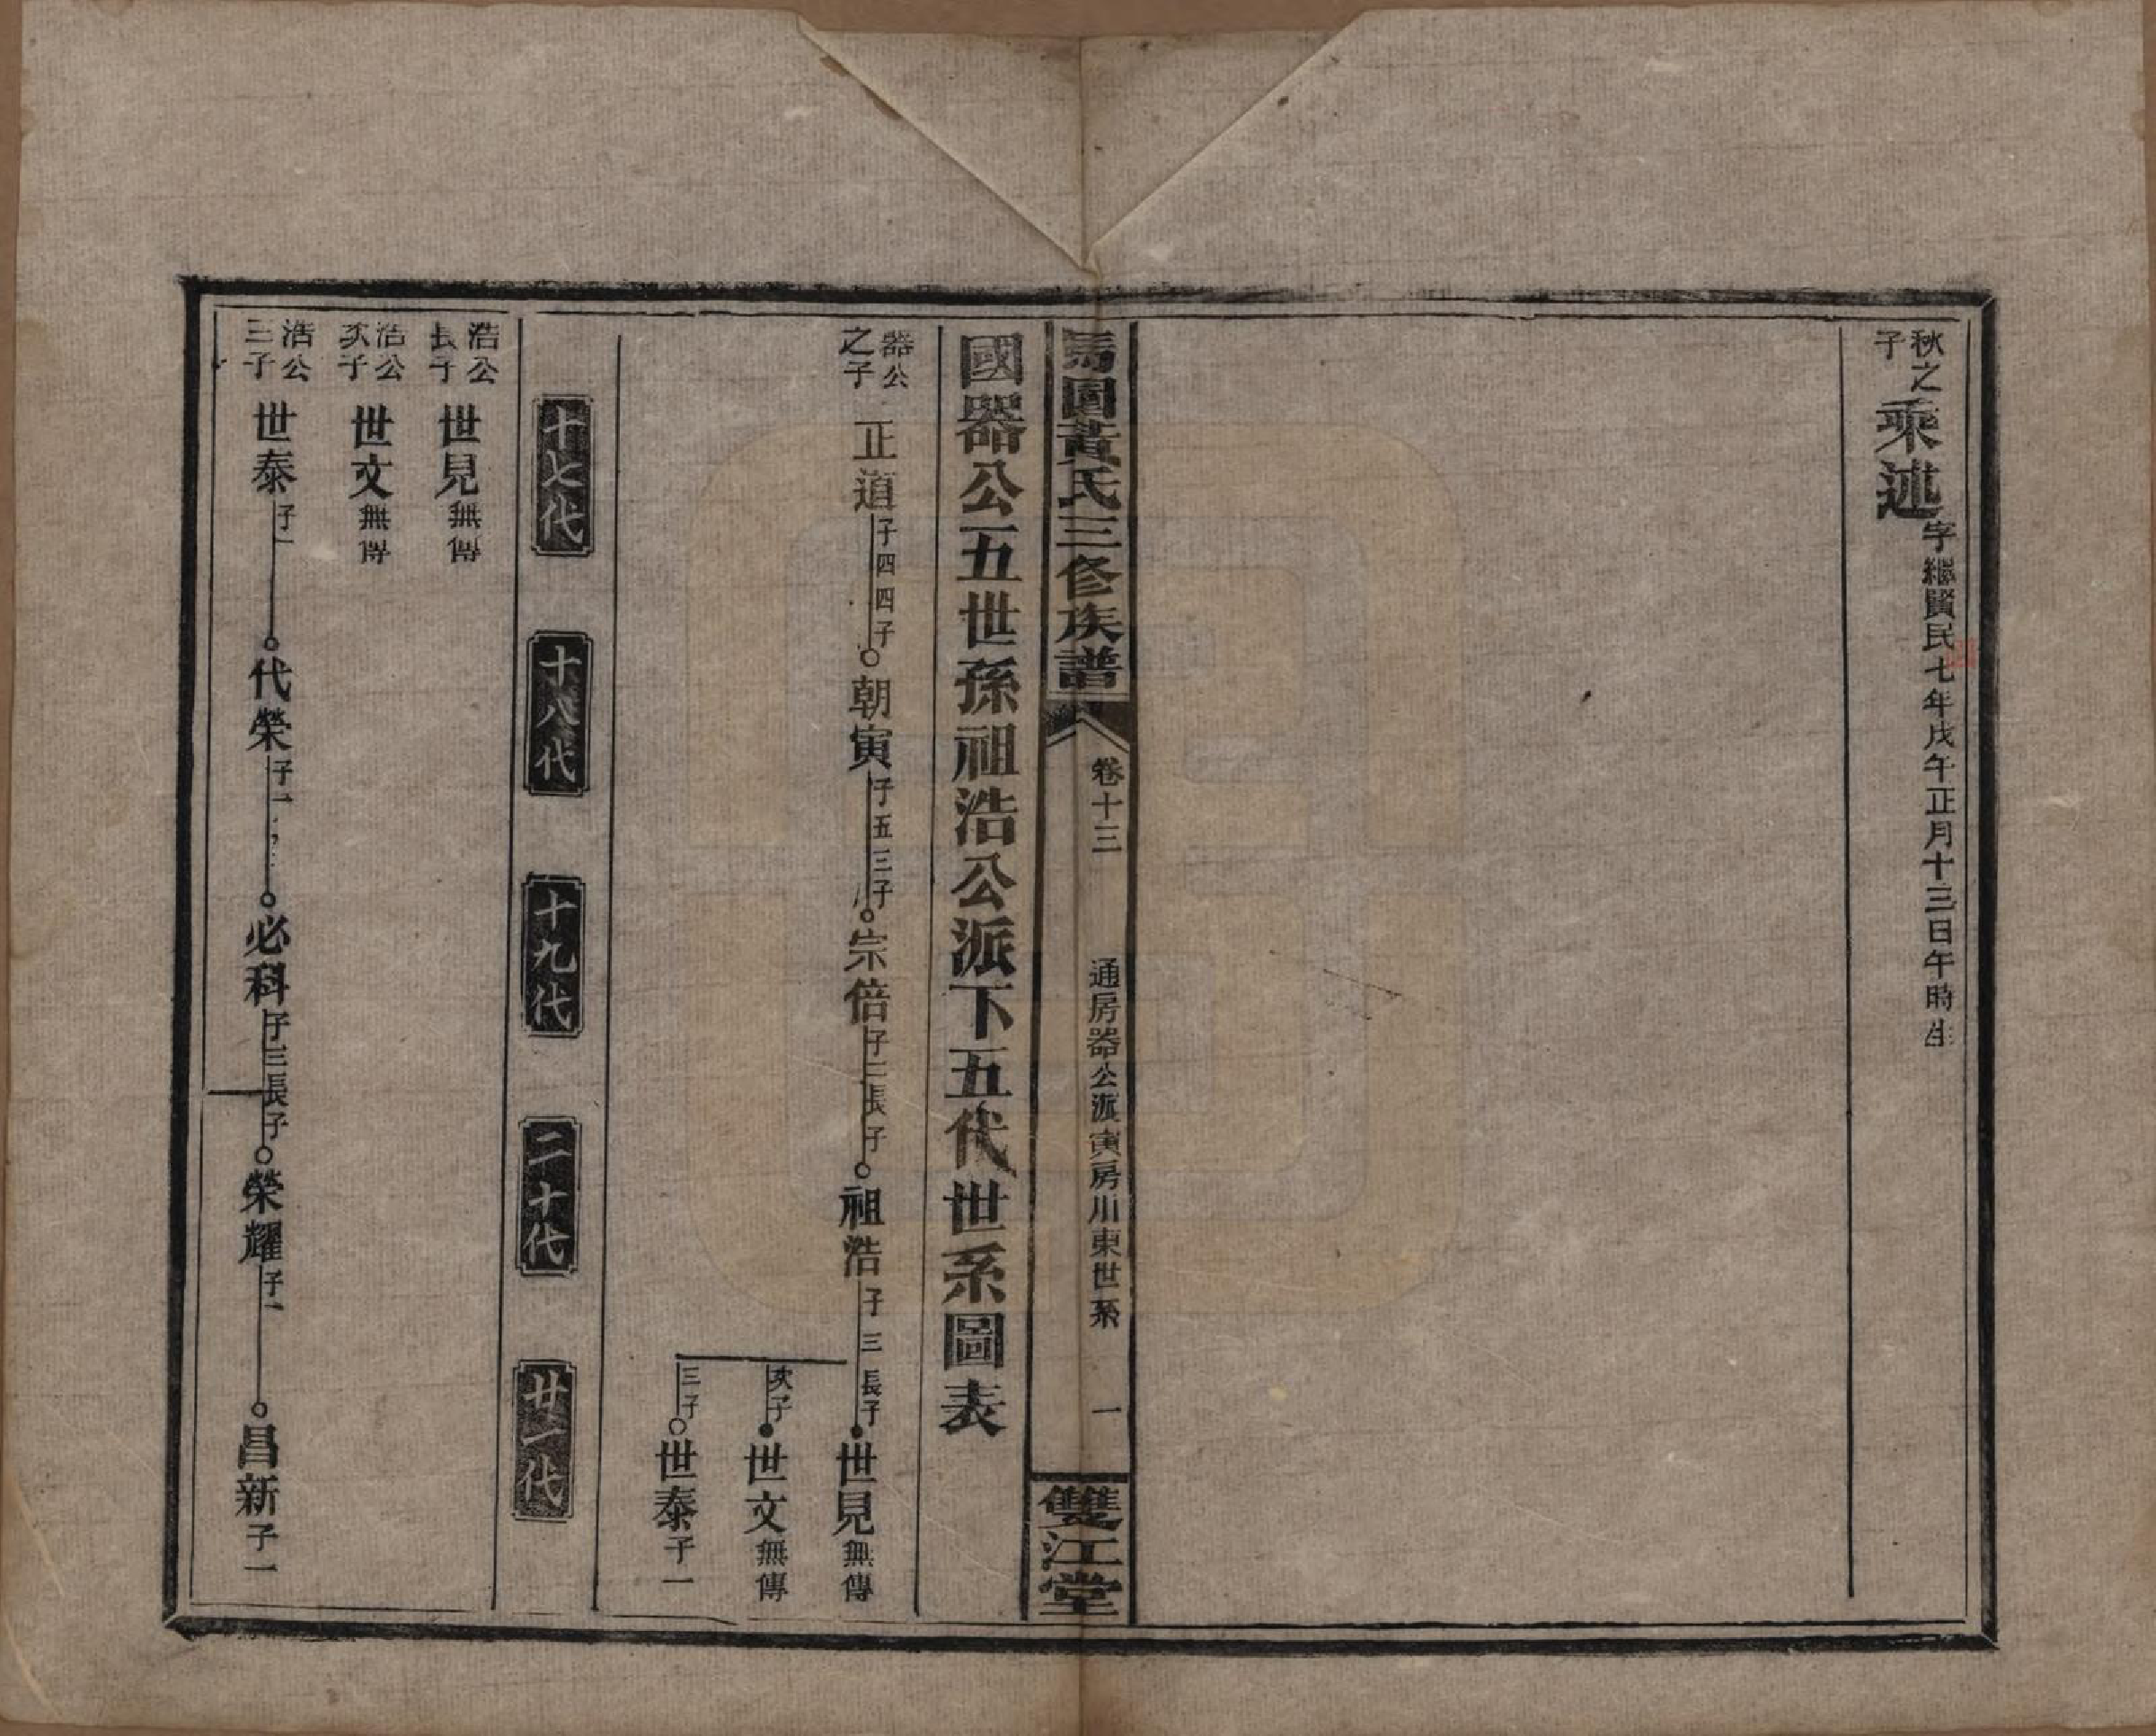 秋之子
乘述
字繼賢民七年戊午正月十三日午時生
馬圖黃氏三修族譜
卷十三
通房器公派寅房川東世系
一
雙江堂
國器公五世孫祖浩公派下五代世系圖表
器公之子
正道 子四四子
朝寅 子五三子
宗倍 子二長子
祖浩 子三 長子
世見 無傳
次子
世文 無傳
三子
世泰 子一
十七代
十八代
十九代
二十代
廿一代
浩公長子
世見 無傳
浩公次子
世文 無傳
浩公三子
世泰 子一
代榮 子一
必科 子三長子
榮耀 子一
昌新 子一